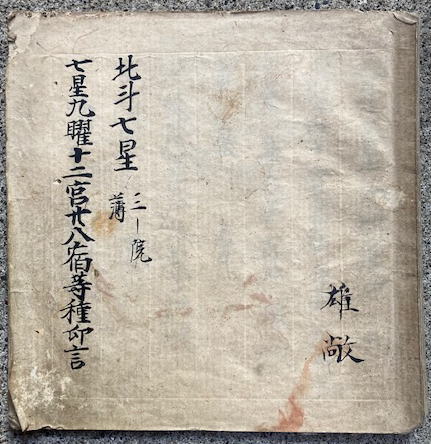 雄敞
北斗七星
三ー院
薄
七星九曜十二宮廿八宿等種印言